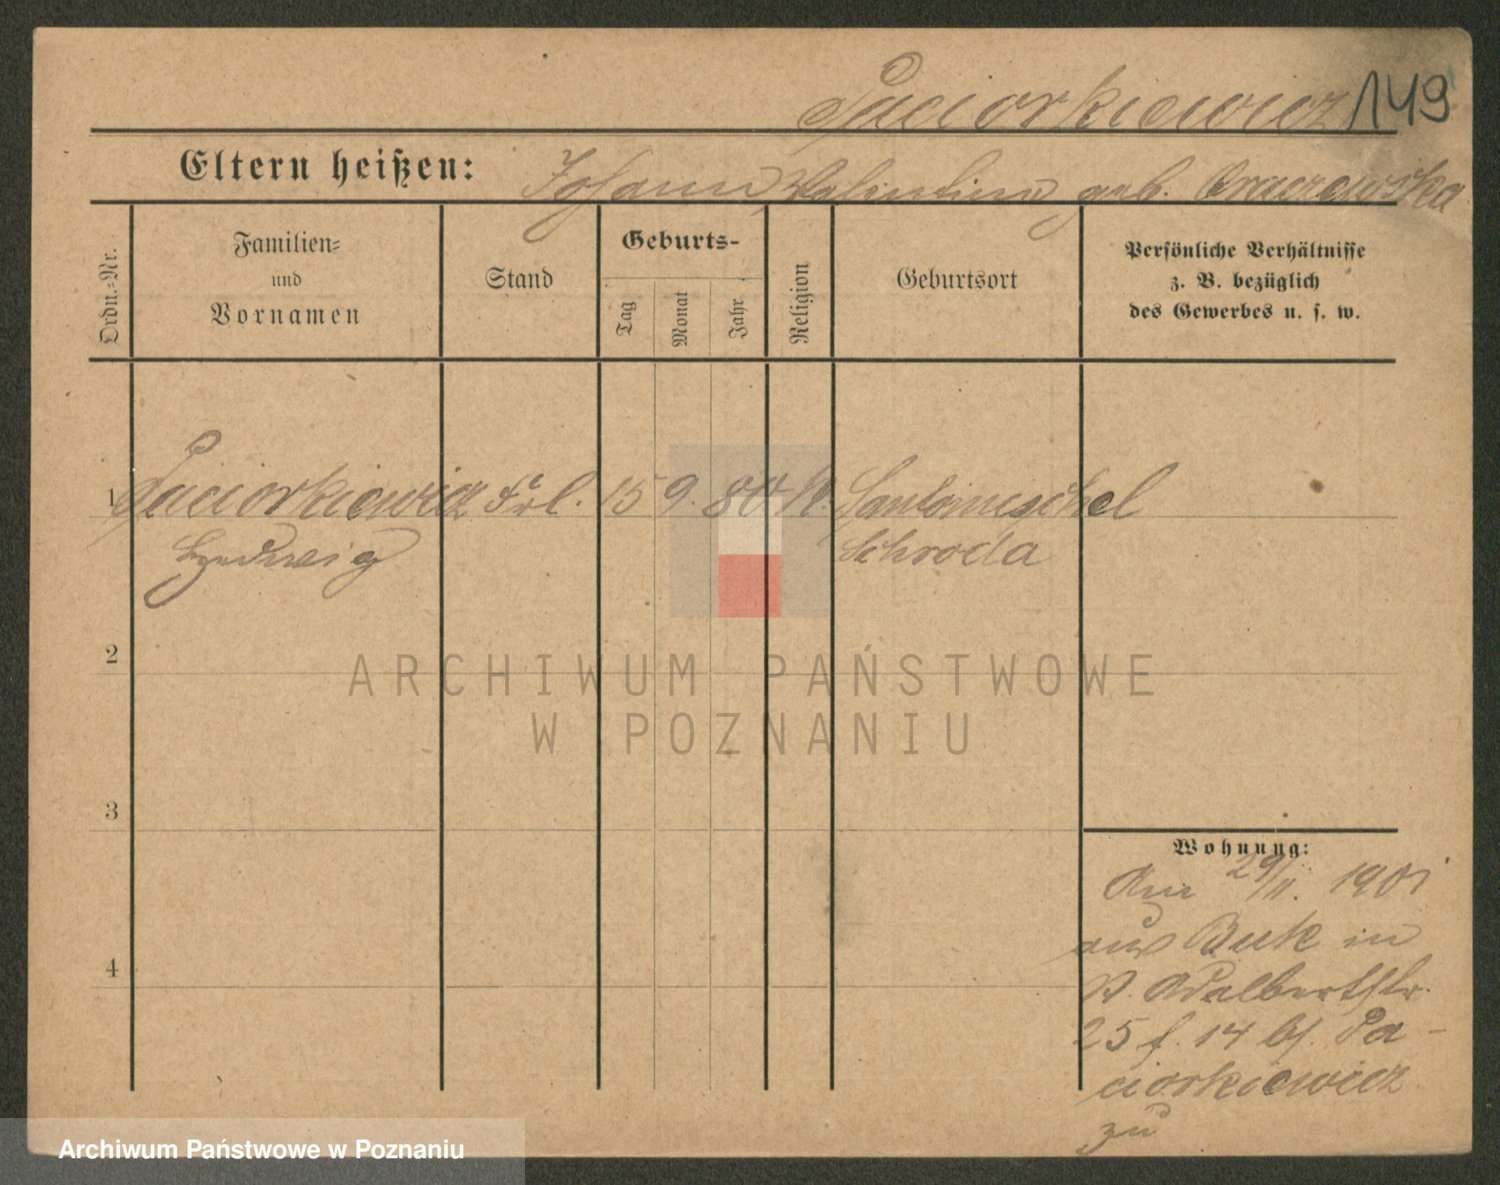 Paciorkiewicz 149
Eltern heißen: Johann, Valentine geb.
Ordn.-Nr.
Familien-
und
Vornamen
Stand
Geburts-
Tag
Monat
Jahr
Religion
Geburtsort
Persönliche Verhältnisse
z. B. bezüglich
des Gewerbes u. s. w.
1 Paciorkiewicz Frl. 15 9. 80 K. Santomischel
Hedwig Schroda
2
3
4
Wohnung:
Am 29/11. 1901
aus Buk in
P. Adalbertstr.
25 f. 14 bf. Pa-
ciorkiewicz
zu
ARCHIWUM PAŃSTWOWE
W POZNANIU
Archiwum Państwowe w Poznaniu